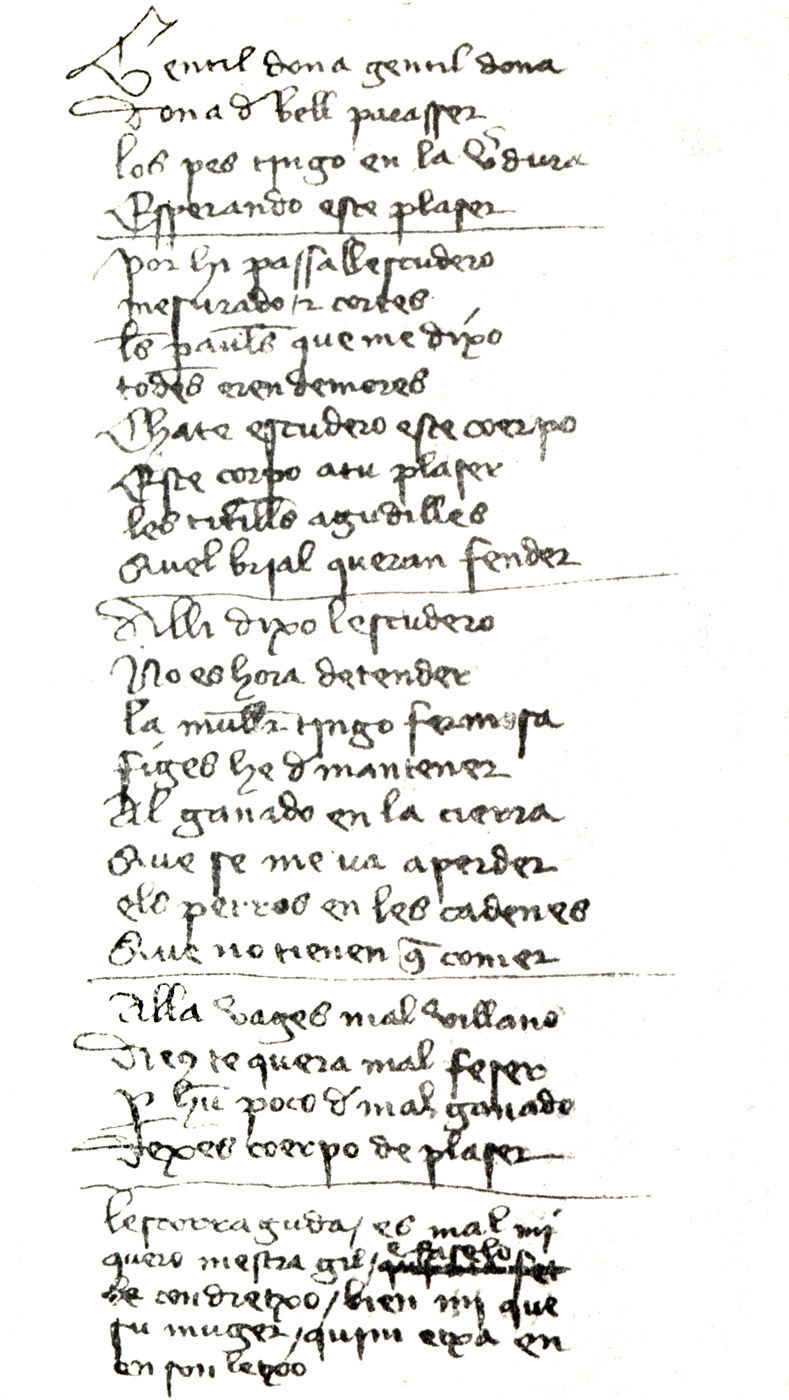 Gentil dona gentil dona
dona d bell parasser
los pes tingo en la vdura
Esperando este plaser
Por hi passa lescudero
mesurado τ cortes
les paraules que me dixo
todes eren demores
Thate escudero este coerpo
Este corpo atu plaser
les titilles agudilles
Quel brial queran fender
Alli dixo lescudero
No es hora detender
la muller tingo fermosa
figes he d mantener
Al ganado en la cierra
Que se me va aperder
els perros en les cadenes
Que no tienen q comer
Alla vages mal villano
Dieus te quera mal feser
P hu poco d mal ganado
Dexes coerpo de plaser
lescorraguda / es mal mi
quero mestra gil / e faselo
con dretxo / bien mi que
su muger / quim etxa en
son letxo